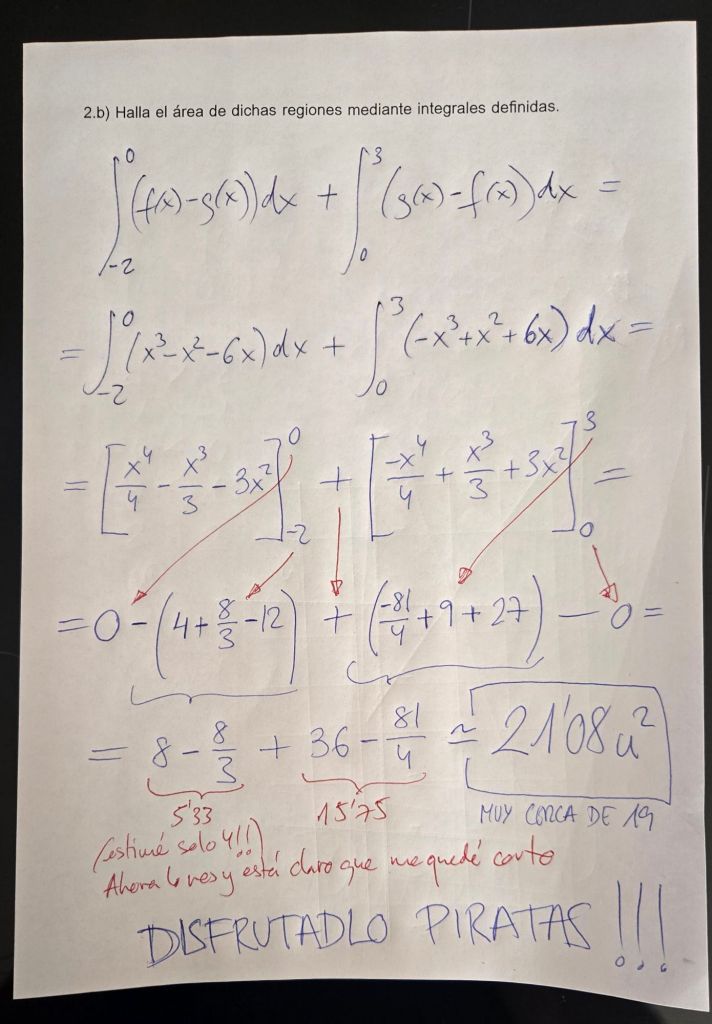 2.b) Halla el área de dichas regiones mediante integrales definidas.
∫₋₂⁰ (f(x)-g(x))dx + ∫₀³ (g(x)-f(x))dx =
= ∫₋₂⁰ (x³-x²-6x)dx + ∫₀³ (-x³+x²+6x)dx =
= [x⁴/4 - x³/3 - 3x²]₋₂⁰ + [-x⁴/4 + x³/3 + 3x²]₀³ =
= 0 - (4 + 8/3 - 12) + (-81/4 + 9 + 27) - 0 =
= 8 - 8/3 + 36 - 81/4 ≃ 21'08 u²
5'33 15'75 MUY CERCA DE 19
(estimé solo 4!!)
Ahora lo ves y está claro que me quedé corto
DISFRUTADLO PIRATAS!!!